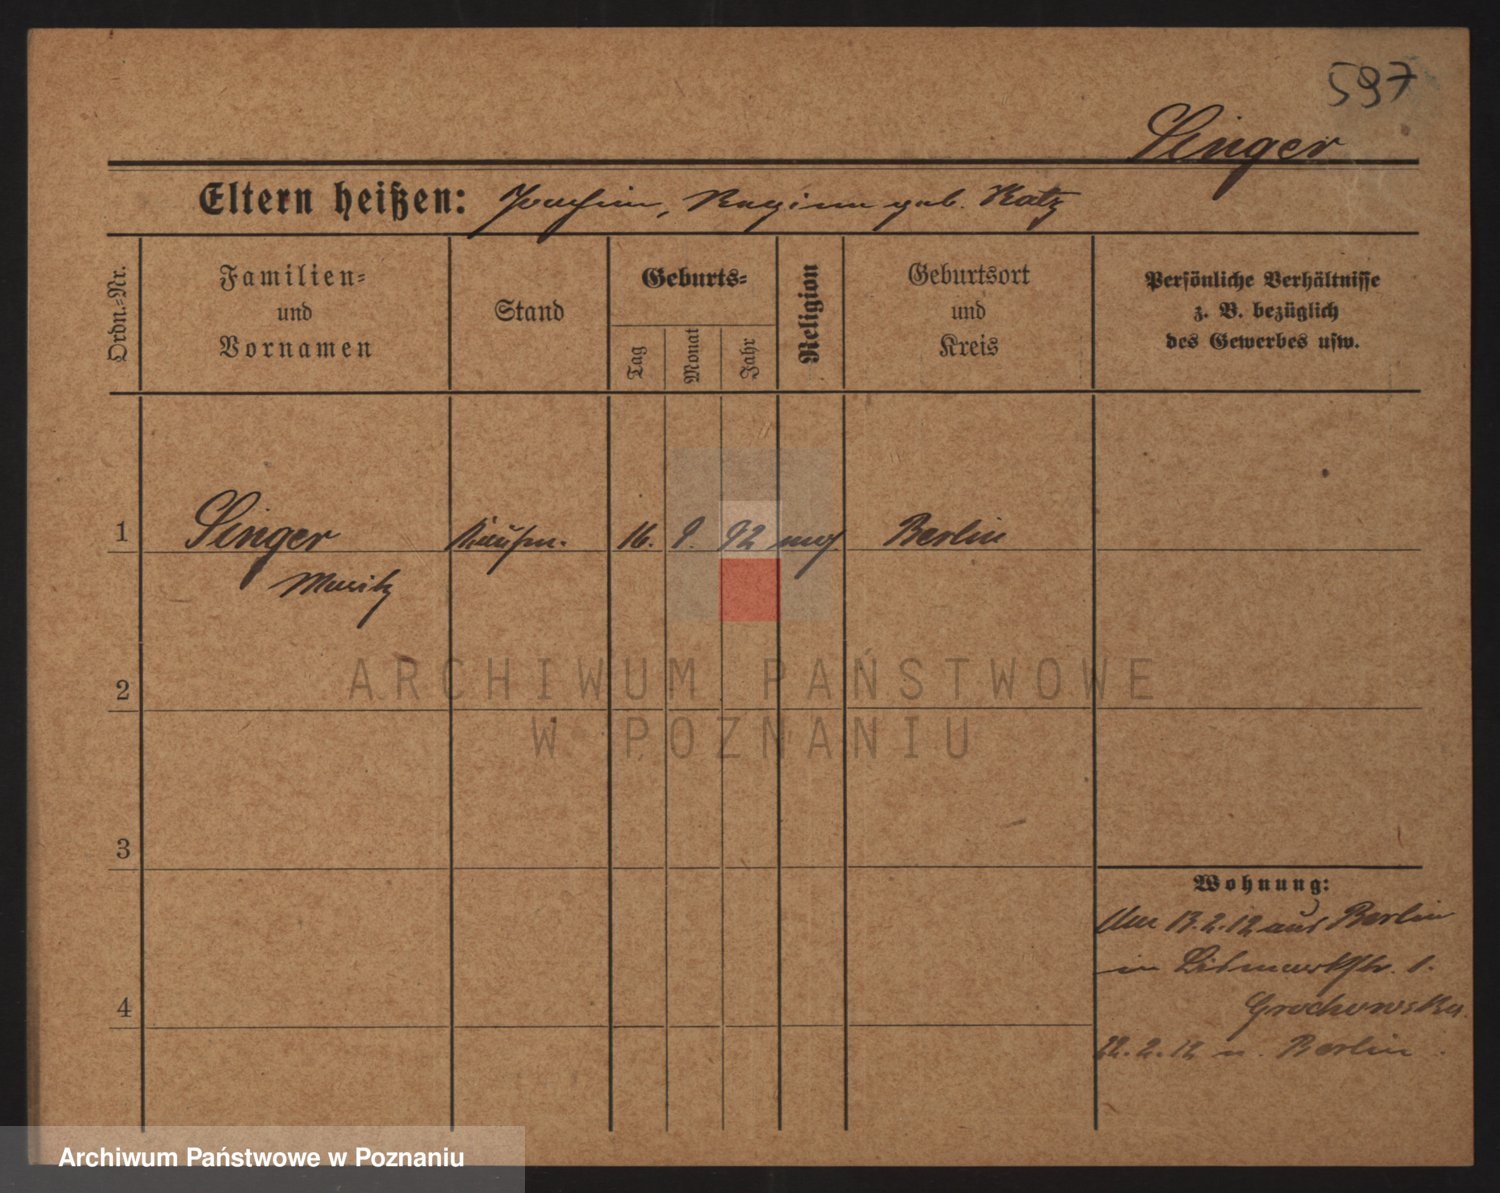 597
Singer
Eltern heißen: Joachim, Regina geb. Katz
Ordn.-Nr.
Familien-
und
Vornamen
Stand
Geburts-
Tag
Monat
Jahr
Religion
Geburtsort
und
Kreis
Persönliche Verhältnisse
z. B. bezüglich
des Gewerbes usw.
1
Singer
Moritz
Kaufm.
16. 9. 92 mos
Berlin
2
ARCHIWUM PAŃSTWOWE
W POZNANIU
3
4
Wohnung:
13.2.12 aus Berlin
in Bismarckstr. 1.
Grochowska
22.2.12 n. Berlin.
Archiwum Państwowe w Poznaniu